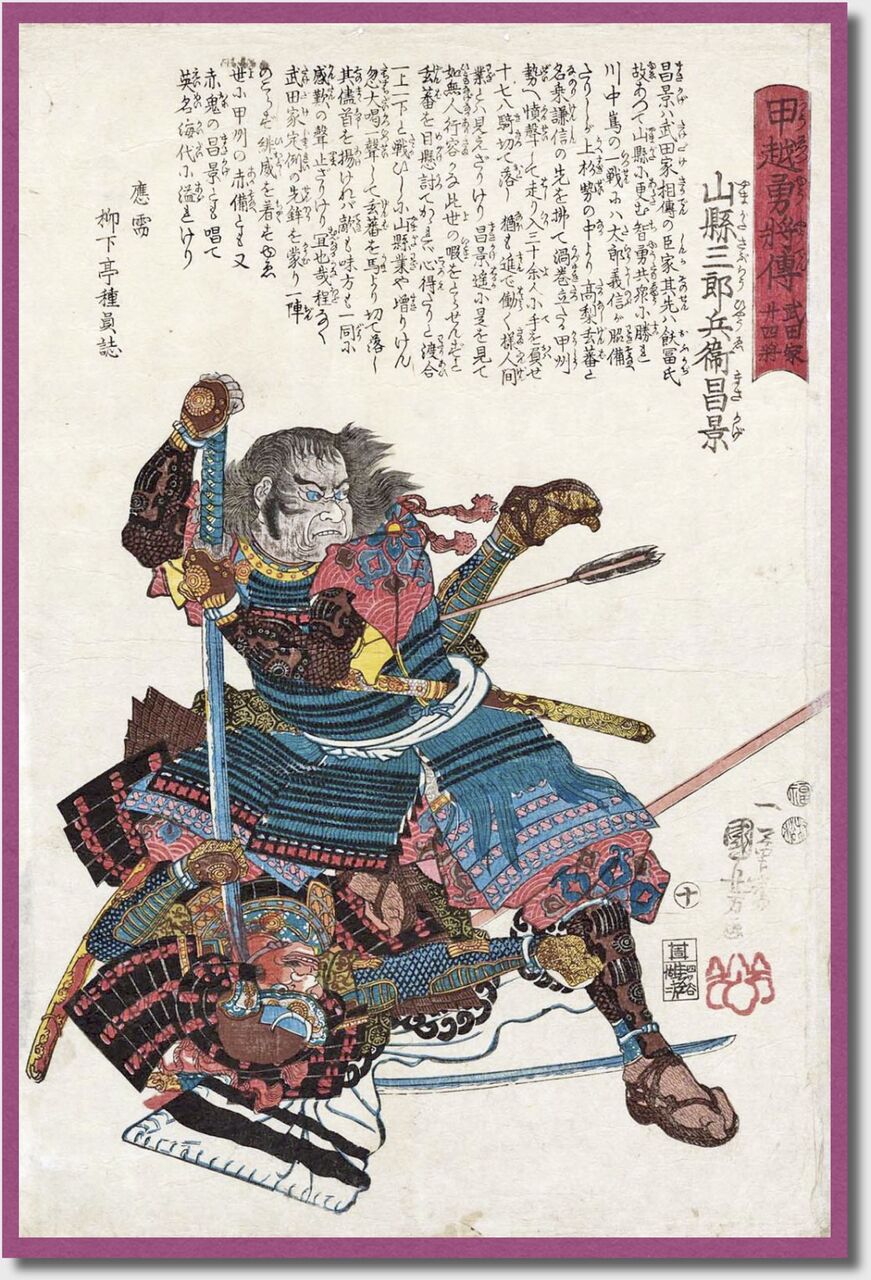 甲越勇將傳
武田家
廾四將
山縣三郎兵衞昌景
昌景ハ武田家相傳の臣家其先ハ飫冨氏
故あつて山縣に更む智勇共衆に勝れ
川中嶌の一戦にハ太郎義信が脇備
たりしが上杉勢の中より高梨玄蕃と
名乗謙信の先を拂て渦巻立たる甲州
勢へ憤聲して走り入三十余人に手を負せ
十七八騎切て落し猶も進で働く様人間
業とハ見えざりけり昌景遥に是を見て
如無人行容かな此世の暇をとらせんずと
玄蕃を目懸討てかゝれバ心得たりと渡合
一上一下と戦ひしに山縣業や増りけん
忽大喝一聲して玄蕃を馬より切て落し
其儘首を揚けれバ敵も味方も一同に
感歎の聲止ざりけり宜也哉程なく
武田家定例の先鋒を蒙り一陣
のこらず緋威を着すゆゑ
世に甲州の赤備とも又
赤鬼の昌景とも唱て
英名海代に溢れけり
應需
柳下亭種員誌
一勇齋
國芳画
十